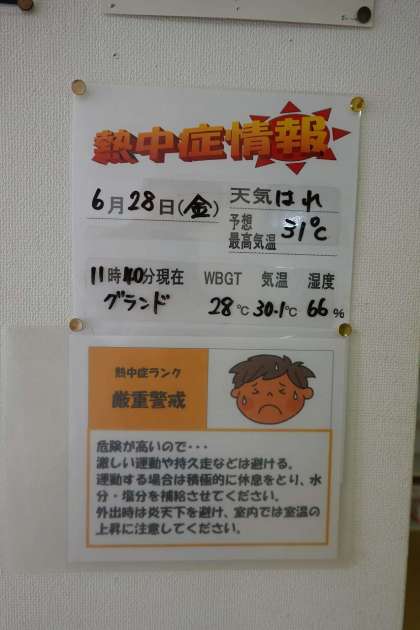 熱中症情報
6月28日(金) 天気はれ
予想最高気温 31℃
11時40分現在 WBGT 気温 湿度
グランド 28℃ 30.1℃ 66%
熱中症ランク
厳重警戒
危険が高いので・・・
激しい運動や持久走などは避ける。
運動する場合は積極的に休息をとり、水
分・塩分を補給させてください。
外出時は炎天下を避け、室内では室温の
上昇に注意してください。